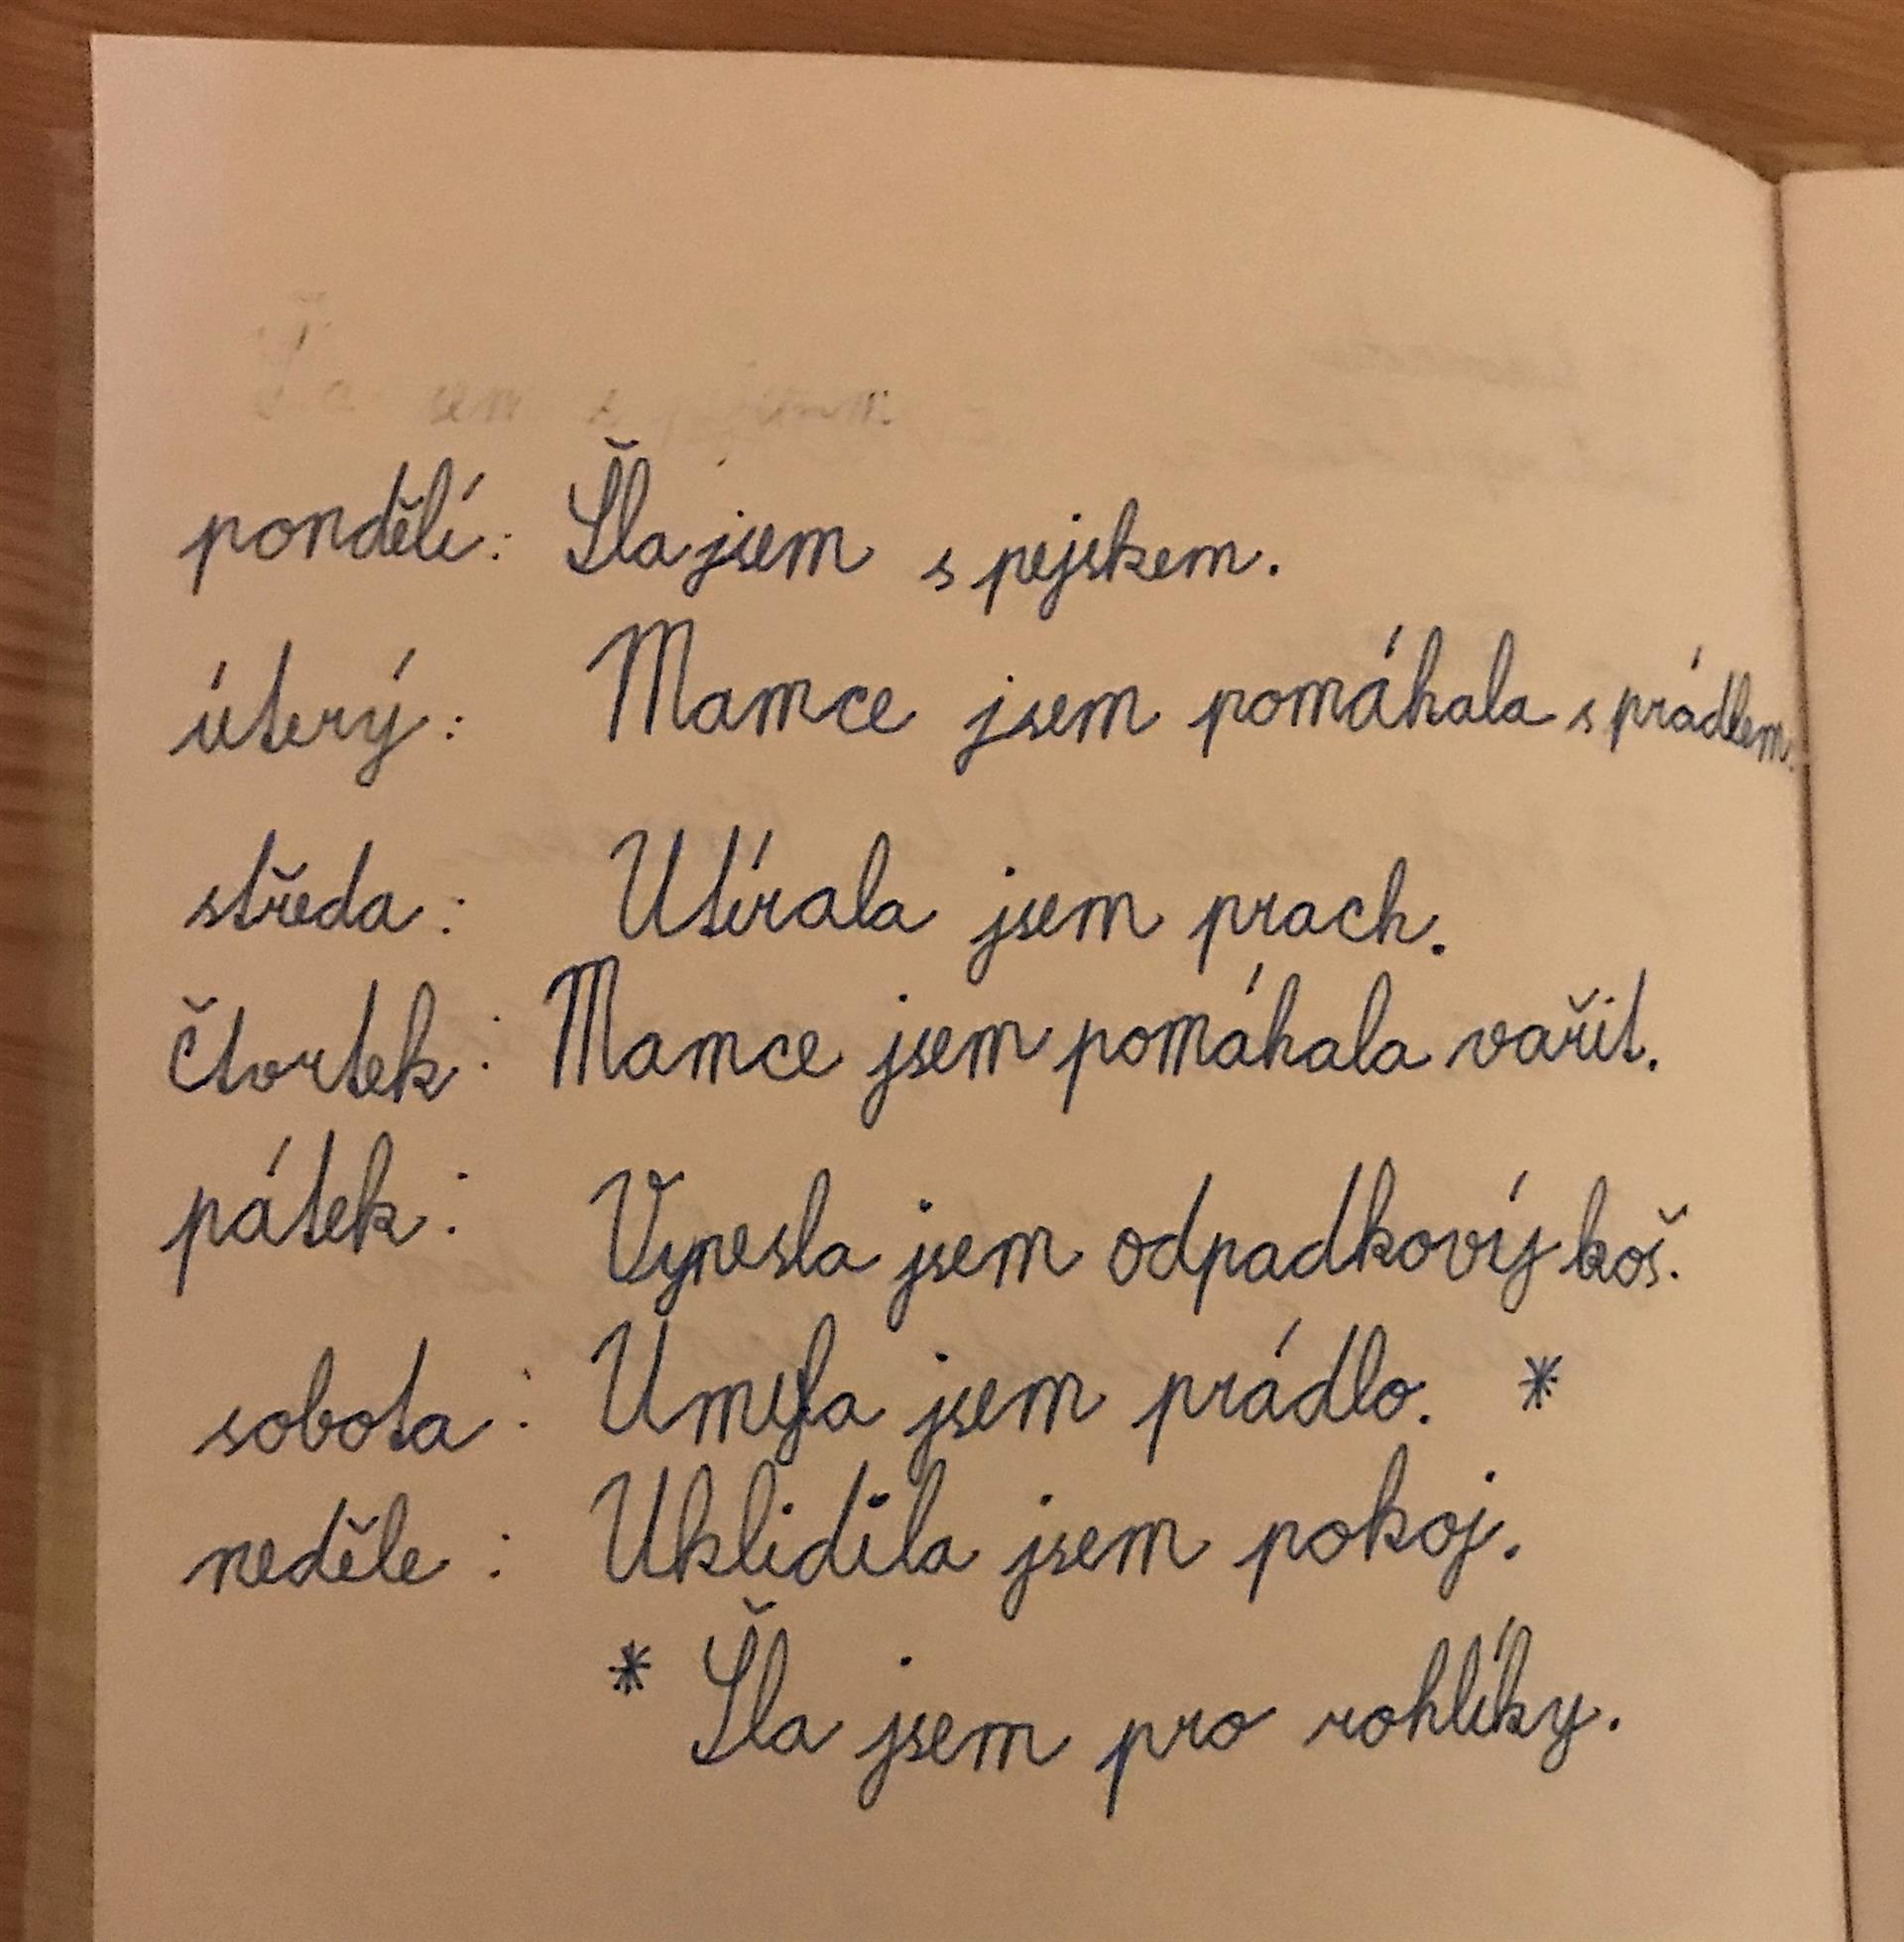 pondělí: Šla jsem s pejskem.
úterý: Mamce jsem pomáhala s prádlem.
středa: Utírala jsem prach.
čtvrtek: Mamce jsem pomáhala vařit.
pátek: Vynesla jsem odpadkový koš.
sobota: Umyla jsem prádlo. *
neděle: Uklidila jsem pokoj.
* Šla jsem pro rohlíky.